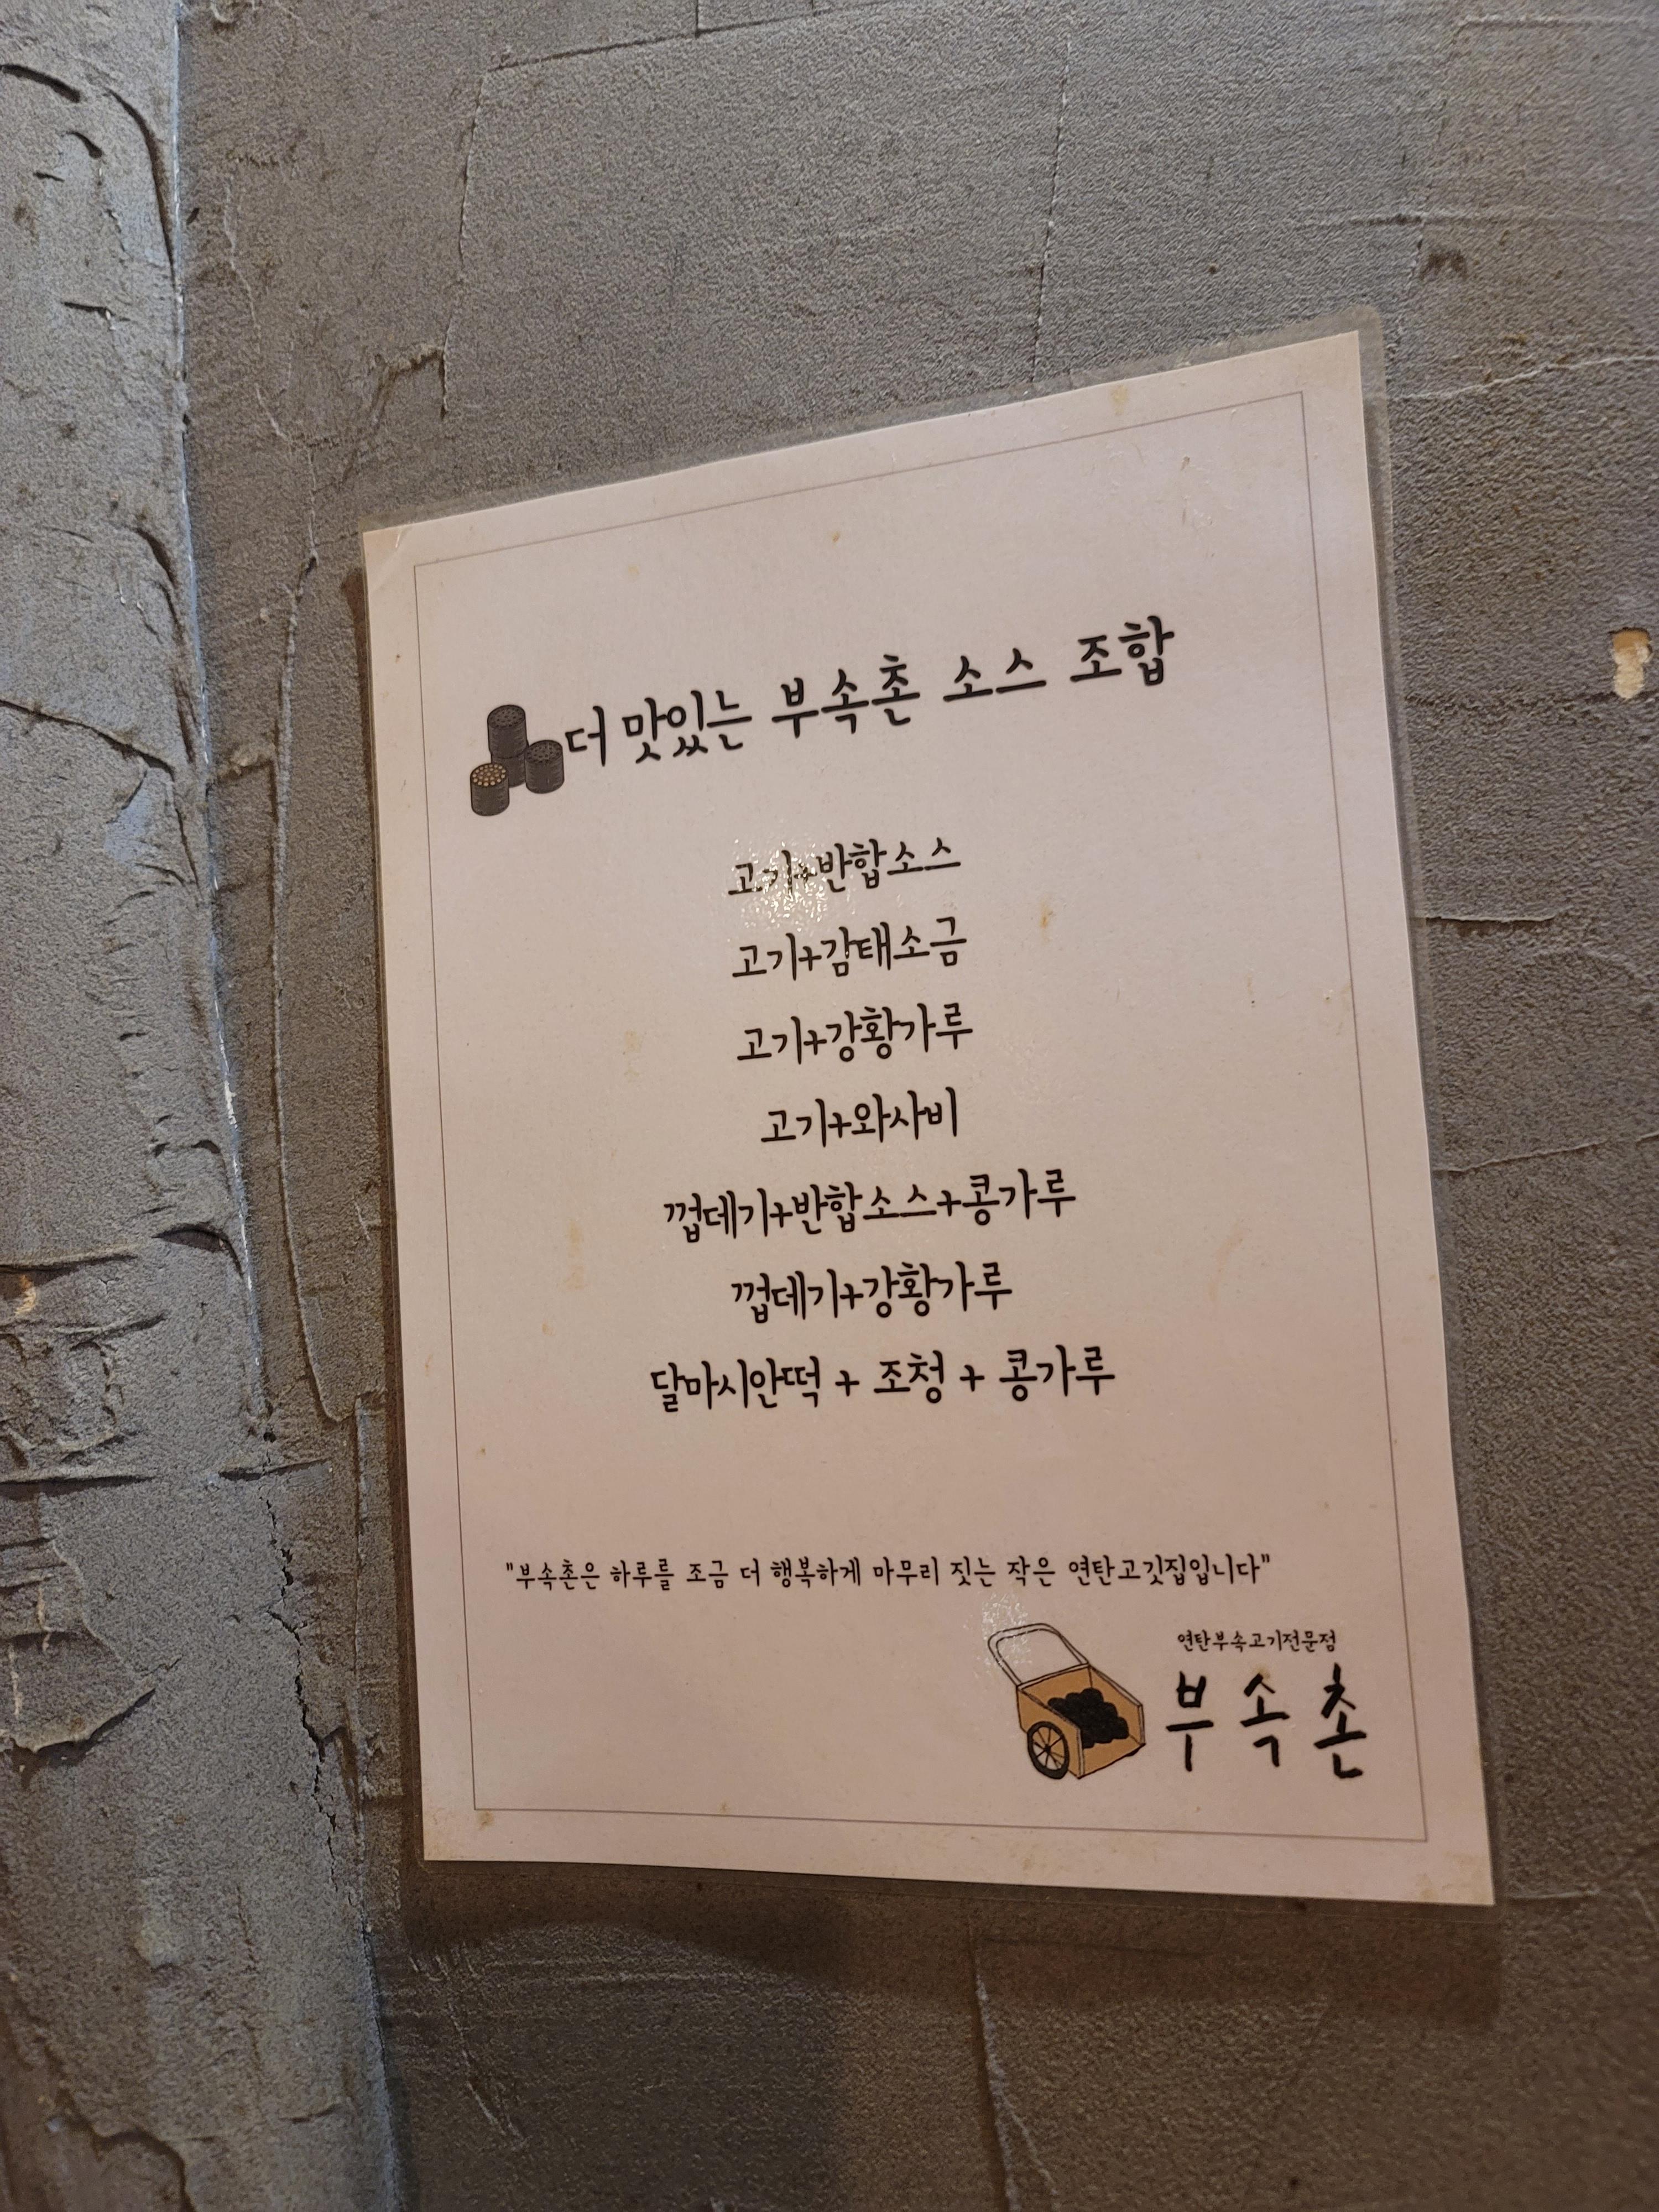 더 맛있는 부속촌 소스 조합
고기+반합소스
고기+감태소금
고기+강황가루
고기+와사비
껍데기+반합소스+콩가루
껍데기+강황가루
달마시안떡 + 조청 + 콩가루
"부속촌은 하루를 조금 더 행복하게 마무리 짓는 작은 연탄고깃집입니다"
연탄부속고기전문점
부속촌